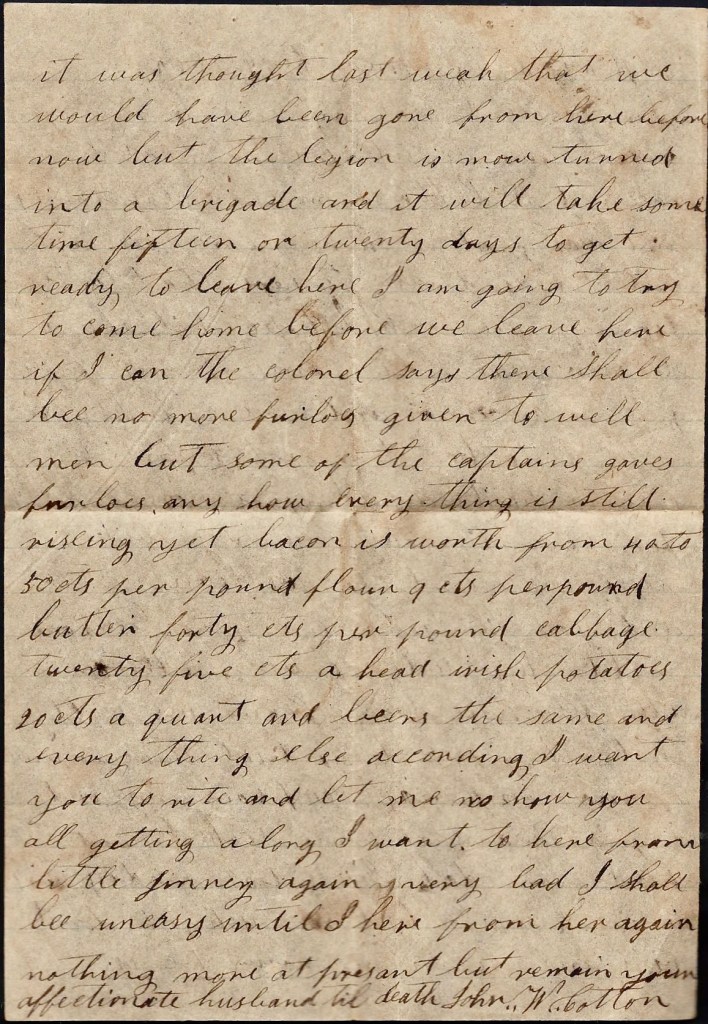 it was thought last weak that we
would have been gone from here before
now but the legion is now turned
into a brigade and it will take some
time fifteen or twenty days to get
ready to leave here I am going to try
to come home before we leave here
if I can the colonel says there shall
bee no more furloes given to well
men but some of the captains gaves
furloes any how every thing is still
riseing yet bacon is worth from 40 to
50 cts per pound flour 9 cts per pound
butter forty cts per pound cabbage
twenty five cts a head irish potatoes
20 cts a quart and beens the same and
every thing else according I want
you to rite and let me no how you
all getting a long I want to here from
little ginney again very bad I shall
bee uneasy until I here from her again
nothing more at presant but remain your
affectionate husband til death John W. Cotton